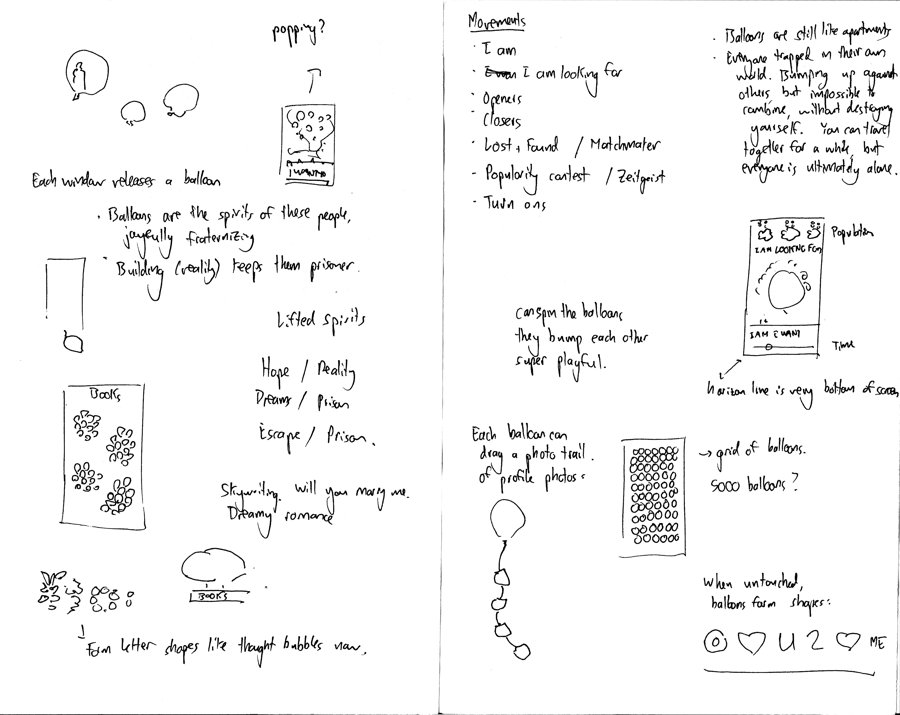 popping?
I WANT
Each window releases a balloon
· Balloons are the spirits of these people,
joyfully fraternizing
· Building (reality) keeps them prisoner.
Lifted spirits
Hope / Reality
Dreams / Prison
Escape / Prison.
BOOKS
Skywriting. Will you marry me.
Dreamy romance
BOOKS
Form letter shapes like thought bubbles now.
Movements
· I am
· I am looking for
· Openers
· Closers
· Lost + Found / Matchmaker
· Popularity contest / Zeitgeist
· Turn ons
· Balloons are still like apartments
· Everyone trapped in their own
world. Bumping up against
others but impossible to
combine, without destroying
yourself. You can travel
together for a while, but
everyone is ultimately alone.
Population
I AM LOOKING FOR
I AM I WANT
Time
horizon line is very bottom of screen
can spin the balloons
they bump each other
super playful.
Each balloon can
drag a photo trail
of profile photos:
→ grid of balloons.
5000 balloons?
When untouched,
balloons form shapes:
U 2 ME